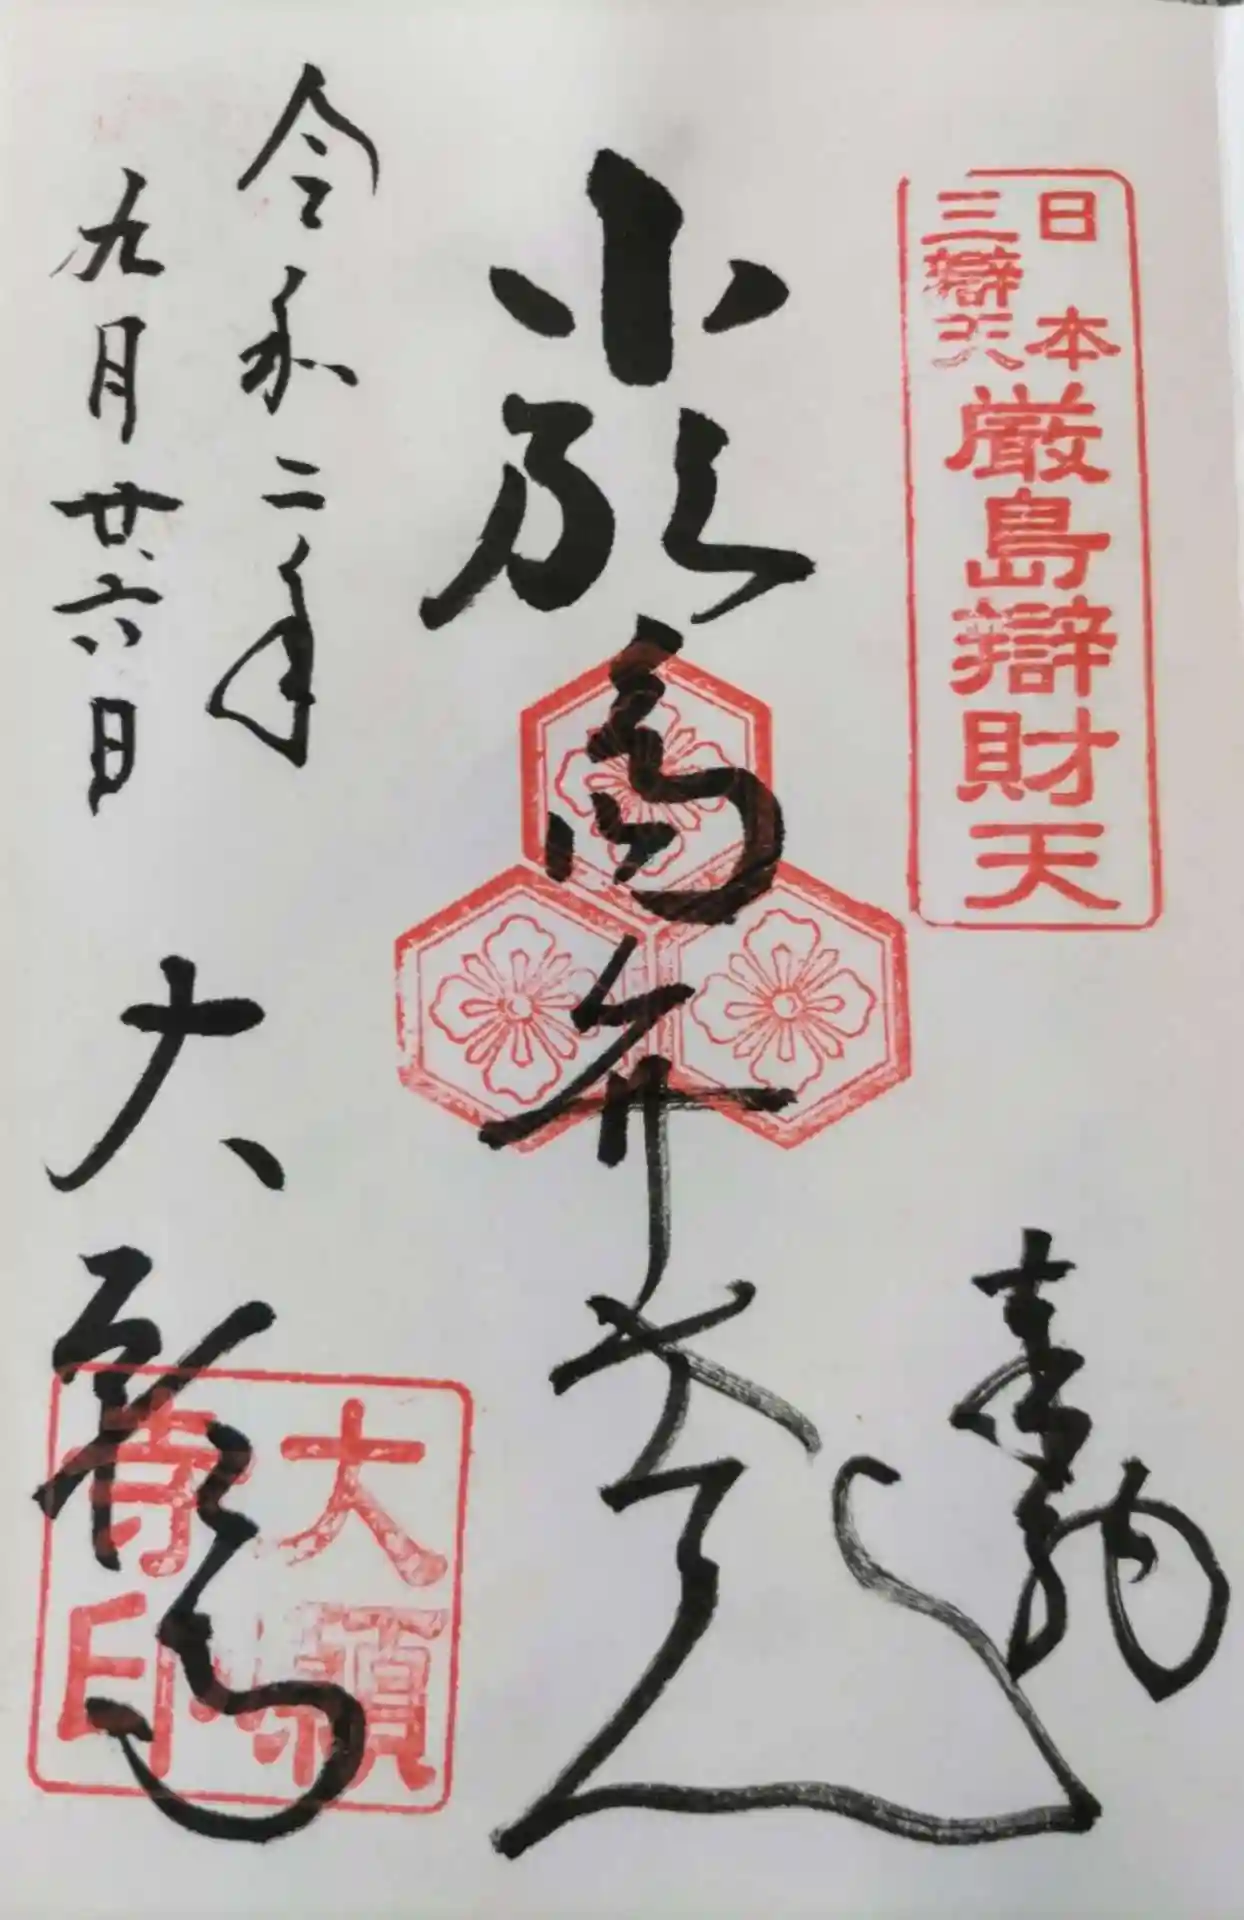 日本
三辯天
厳島辯財天
嚴島弁
令和二年
九月廿六日
大願寺
大願
寺印